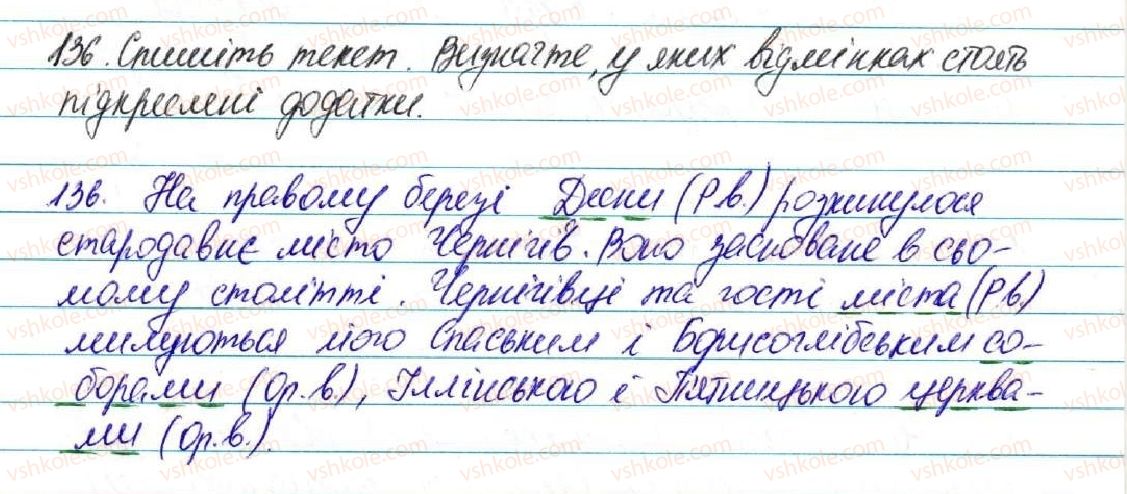 136. Спишіть текст. Визначте, у яких відмінках стоять
підкреслені додатки.
136. На правому березі Десни (Р.в.) розкинулося
стародавнє місто Чернігів. Воно засноване в сьо-
мому столітті. Чернігівці та гості міста (Р.в.)
милуються його Спаським і Борисоглібським со-
борами (Ор.в.), Іллінською і П'ятницькою церква-
ми (Ор.в.).